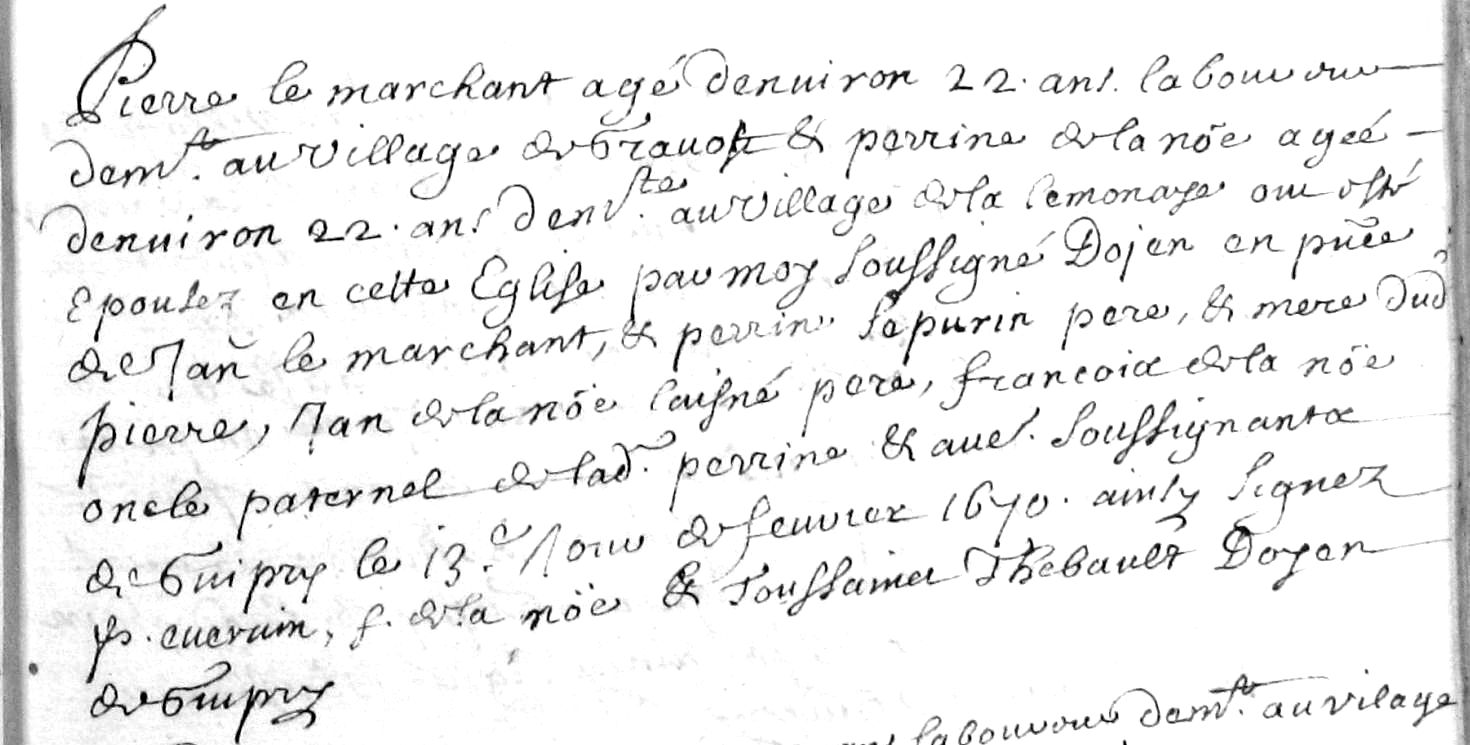 Pierre le marchant agé denuiron 22. ans. laboureur
dem.t au village de & perrine de la nöe ageé
denuiron 22. ans dem.te au village de la lemonaye ont esté
Epousez en cette Eglise par moy soussigné Dojen en pñce
de Jan le marchant, & perrine pere, & mere dud
pierre, Jan de la nöe laisné pere, francois de la nöe
oncle paternel de lad. perrine & aues. soussignants
de Guipry le 13.e Jour de feuvrier 1670. ainsy signez
f. de la nöe & Toussainct Thebault Doyen
de Guipry
laboureur dem.t au vilage